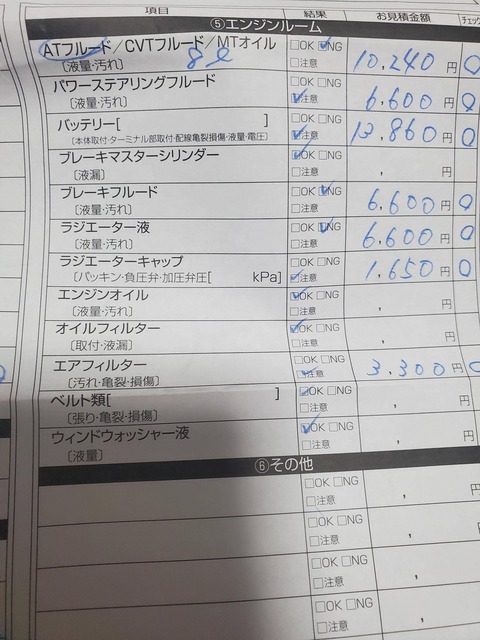 項目 結果 お見積金額 チェック
⑤エンジンルーム
ATフルード／CVTフルード／MTオイル □OK ☑NG
〔液量・汚れ〕 8ℓ □注意 10,240円
パワーステアリングフルード □OK □NG
〔液量・汚れ〕 ☑注意 6,600円
バッテリー[ ] □OK □NG
〔本体取付・ターミナル部取付・配線亀裂損傷・液量・電圧〕 ☑注意 13,860円
ブレーキマスターシリンダー ☑OK □NG
〔液漏〕 □注意 , 円
ブレーキフルード □OK ☑NG
〔液量・汚れ〕 □注意 6,600円
ラジエーター液 □OK ☑NG
〔液量・汚れ〕 □注意 6,600円
ラジエーターキャップ □OK □NG
〔パッキン・負圧弁・加圧弁圧[ kPa] ☑注意 1,650円
エンジンオイル ☑OK □NG
〔液量・汚れ〕 □注意 , 円
オイルフィルター ☑OK □NG
〔取付・液漏〕 □注意 , 円
エアフィルター □OK □NG
〔汚れ・亀裂・損傷〕 ☑注意 3,300円
ベルト類[ ] ☑OK □NG
〔張り・亀裂・損傷〕 □注意 , 円
ウィンドウォッシャー液 ☑OK □NG
〔液量〕 □注意 , 円
⑥その他
□OK □NG
□注意 , 円
□OK □NG
□注意 , 円
□OK □NG
□注意 , 円
□OK □NG
□注意 ,